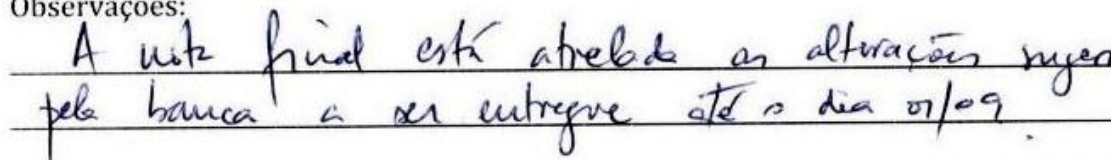 Observações:
A nota final está atrelada as alterações suger
pela banca a ser entregue até o dia 01/09